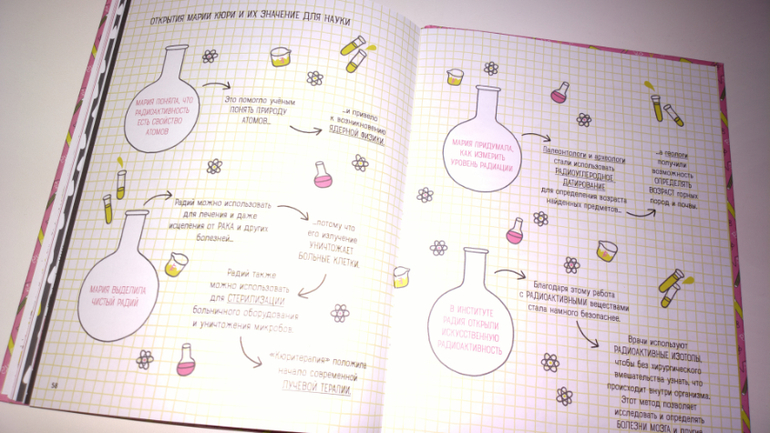 ОТКРЫТИЯ МАРИИ КЮРИ И ИХ ЗНАЧЕНИЕ ДЛЯ НАУКИ
МАРИЯ ПОНЯЛА, ЧТО
РАДИОАКТИВНОСТЬ
ЕСТЬ СВОЙСТВО
АТОМОВ
Это помогло учёным
ПОНЯТЬ ПРИРОДУ
АТОМОВ...
...и привело
к возникновению
ЯДЕРНОЙ ФИЗИКИ.
МАРИЯ ВЫДЕЛИЛА
ЧИСТЫЙ РАДИЙ
Радий можно использовать
для лечения и даже
исцеления от РАКА и других
болезней...
...потому что
его излучение
УНИЧТОЖАЕТ
БОЛЬНЫЕ КЛЕТКИ.
Радий также
можно использовать
для СТЕРИЛИЗАЦИИ
больничного оборудования
и уничтожения микробов.
«Кюритерапия» положила
начало современной
ЛУЧЕВОЙ ТЕРАПИИ.
58
МАРИЯ ПРИДУМАЛА,
КАК ИЗМЕРИТЬ
УРОВЕНЬ РАДИАЦИИ
Палеонтологи и археологи
стали использовать
РАДИОУГЛЕРОДНОЕ
ДАТИРОВАНИЕ
для определения возраста
найденных предметов...
...а геологи
получили
возможность
ОПРЕДЕЛЯТЬ
ВОЗРАСТ горных
пород и почвы.
В ИНСТИТУТЕ
РАДИЯ ОТКРЫЛИ
ИСКУССТВЕННУЮ
РАДИОАКТИВНОСТЬ
Благодаря этому работа
с РАДИОАКТИВНЫМИ ВЕЩЕСТВАМИ
стала намного безопаснее.
Врачи используют
РАДИОАКТИВНЫЕ ИЗОТОПЫ,
чтобы без хирургического
вмешательства узнать, что
происходит внутри организма.
Этот метод позволяет
исследовать и определять
БОЛЕЗНИ МОЗГА и других